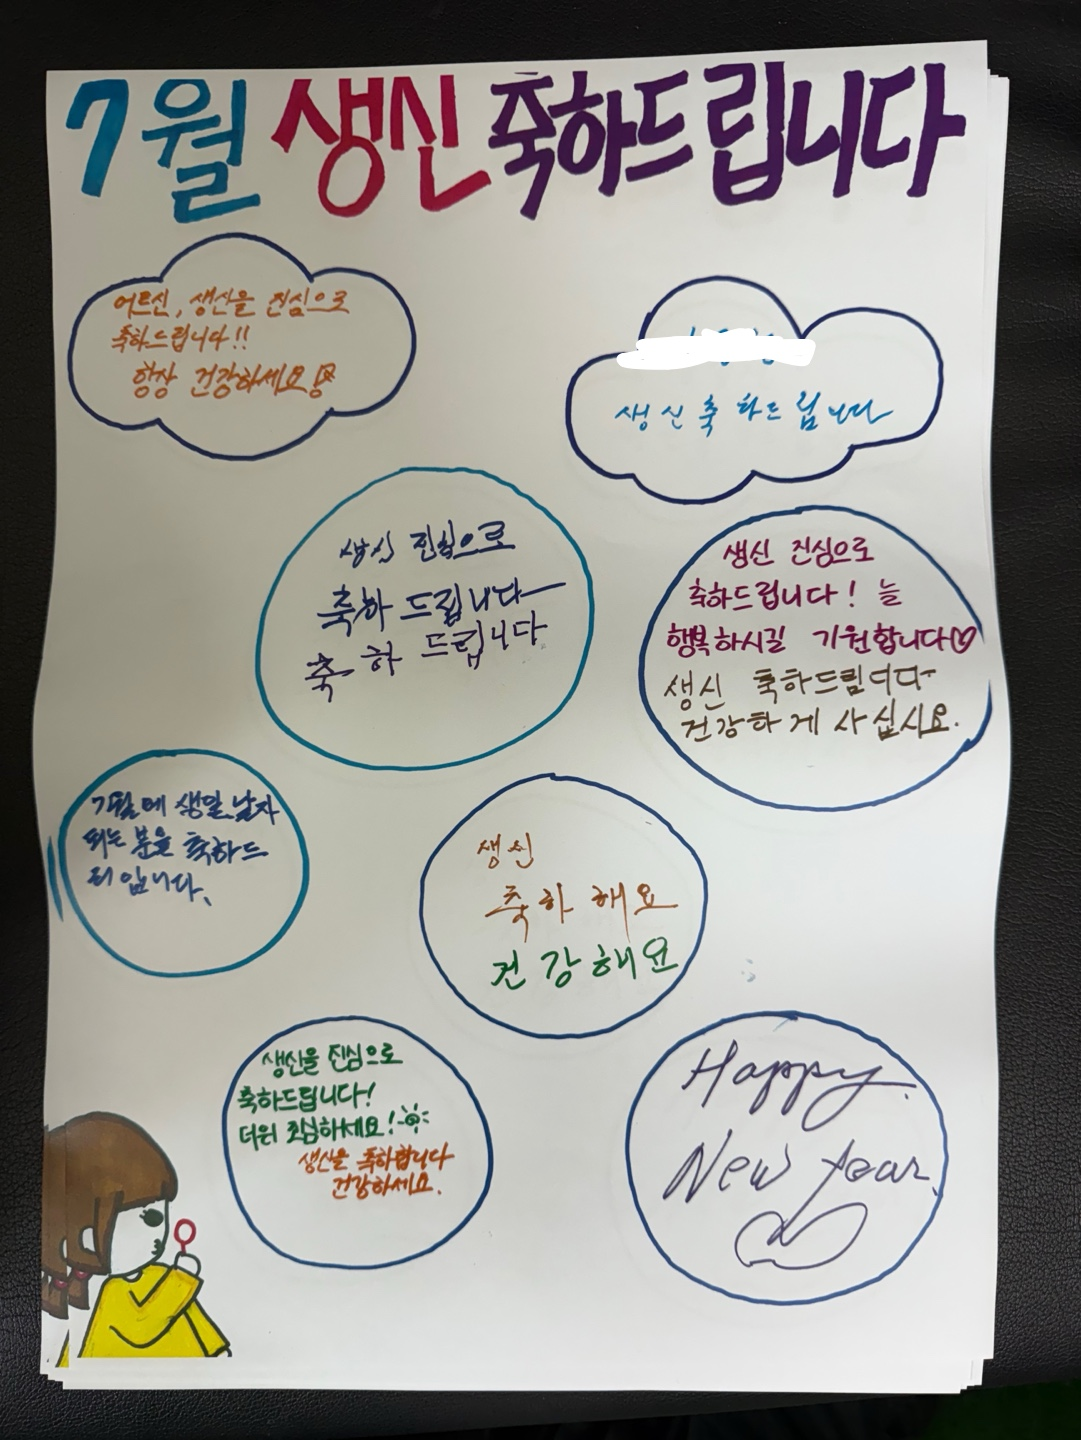 7월 생신 축하드립니다
어르신, 생신을 진심으로
축하드립니다!!
항상 건강하세요!
생신축하드립니다
생신 진심으로
축하드립니다
축하 드립니다
생신 진심으로
축하드립니다! 늘
행복하시길 기원합니다♡
생신 축하드림니다
건강하게 사십시요.
7월에 생일날자
되는 분을 축하드
리입니다.
생신
축하해요
건강해요
생신을 진심으로
축하드립니다!
더위 조심하세요!
생신을 축하합니다
건강하세요.
Happy.
New Year.